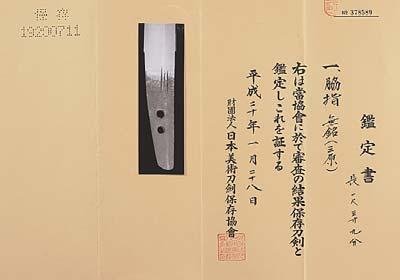 保存
19200711
№ 378589
鑑定書
一、脇指 無銘(三原)
長 一尺三寸九分
右は當協會に於て審査の結果保存刀剣と
鑑定しこれを証する
平成二十年一月二十八日
財團法人日本美術刀劍保存協會